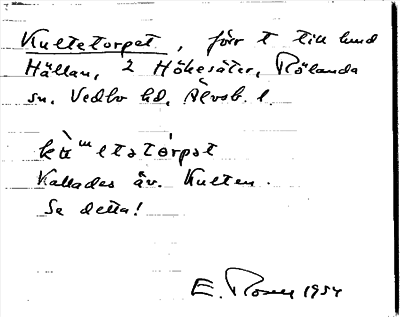 Kultetorpet, förr t till lund
Hällan, 2 Hökesäter, Rölanda
sn. Vedbo hd. Älvsb. l.
kùᵚltetórpət
Kallades äv. Kulten.
Se detta!
E. Rosell 1954